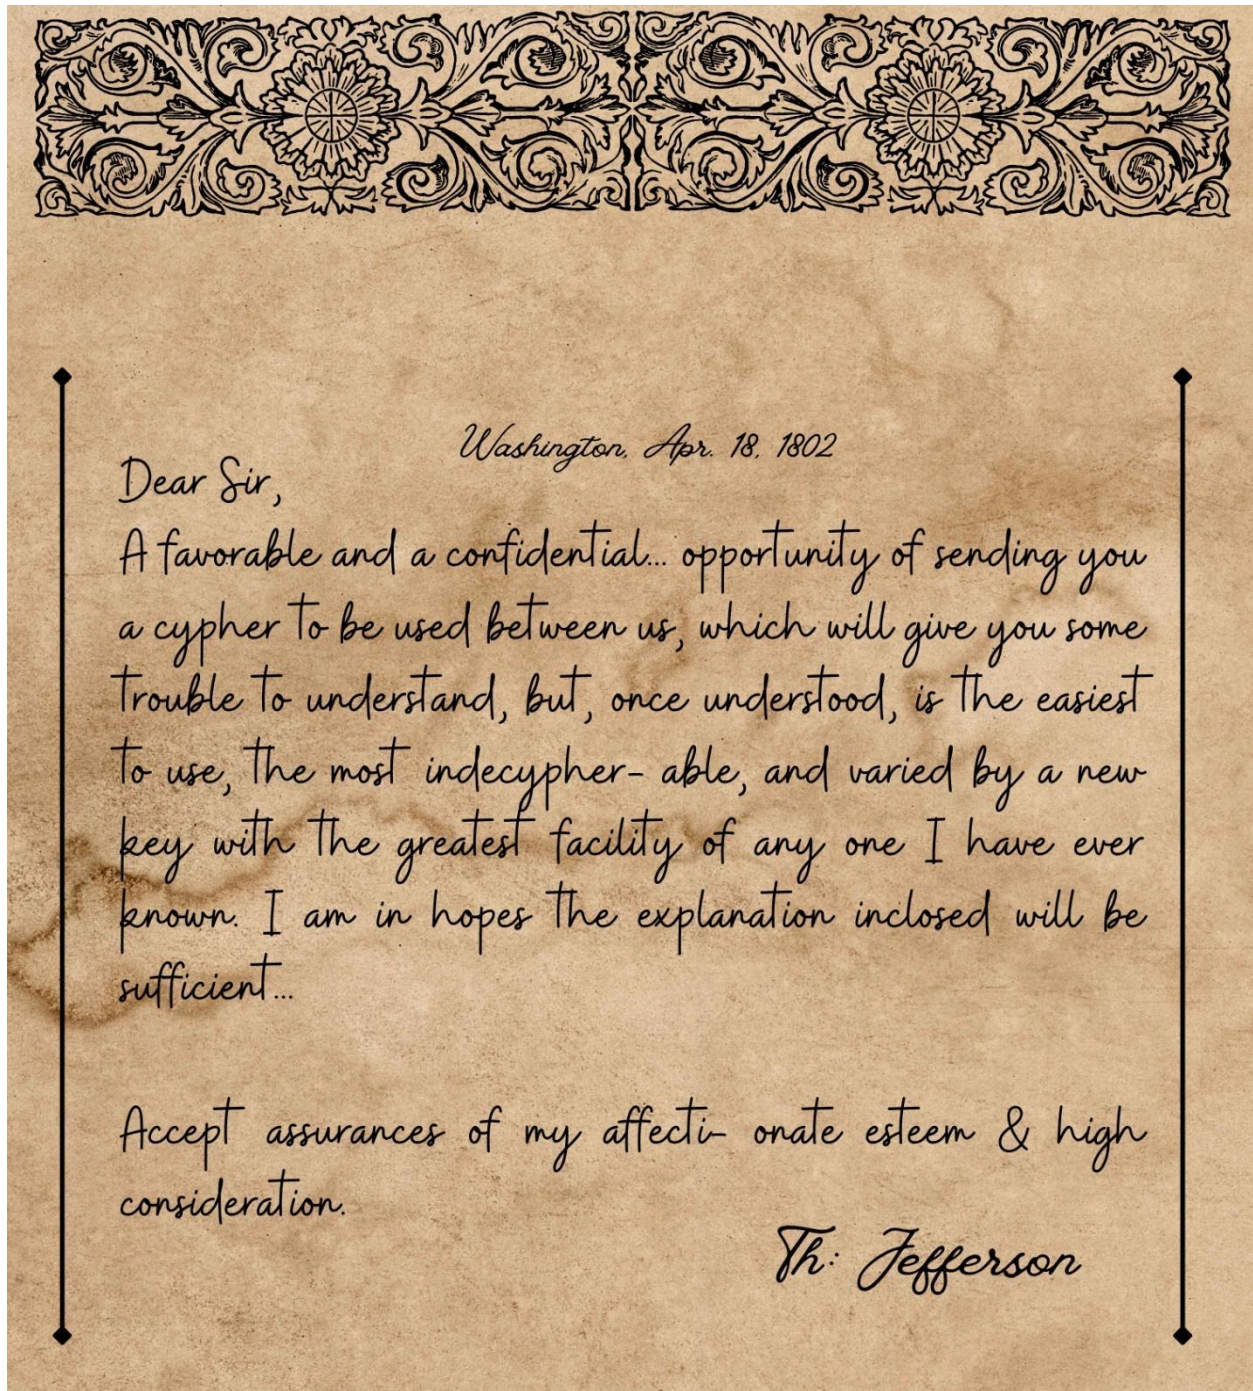 Washington, Apr. 18, 1802
Dear Sir,
A favorable and a confidential... opportunity of sending you
a cypher to be used between us, which will give you some
trouble to understand, but, once understood, is the easiest
to use, the most indecypher- able, and varied by a new
key with the greatest facility of any one I have ever
known. I am in hopes the explanation inclosed will be
sufficient...
Accept assurances of my affecti- onate esteem & high
consideration.
Th: Jefferson